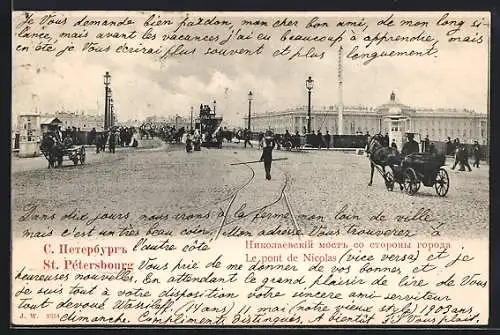 Je Vous demande bien pardon, mon cher bon ami, de mon long si-
lance, mais avant les vacances j'ai eu beaucoup à apprendre, mais
en été je Vous écrirai plus souvent et plus longuement.
Dans dix jours nous irons à la ferme, non loin de ville mais
c'est un très beau coin. Votre mandat Vous trouverez à
l'autre côté
С. Петербургъ
St. Pétersbourg
Николаевскій мостъ со стороны города
Le pont de Nicolas (vice versa) et je
Vous prie de me donner de vos bonnes et
heureuses nouvelles. En attendant le grand plaisir de lire de Vous
je suis à votre disposition votre sincère ami serviteur
tout dévoué Wassily (17 ans) 11 mai (notre vieux style) 1903 ans
dimanche. Compliments distingués, A bientôt S'il Vous plaît
J. W.